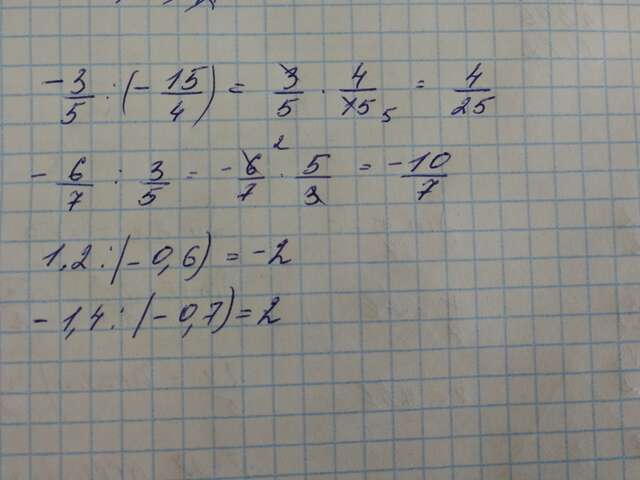 -3/5 : (-15/4) = 3/5 · 4/15 5 = 4/25
-6/7 : 3/5 = -6/7 2 · 5/3 = -10/7
1,2 : (-0,6) = -2
-1,4 : (-0,7) = 2